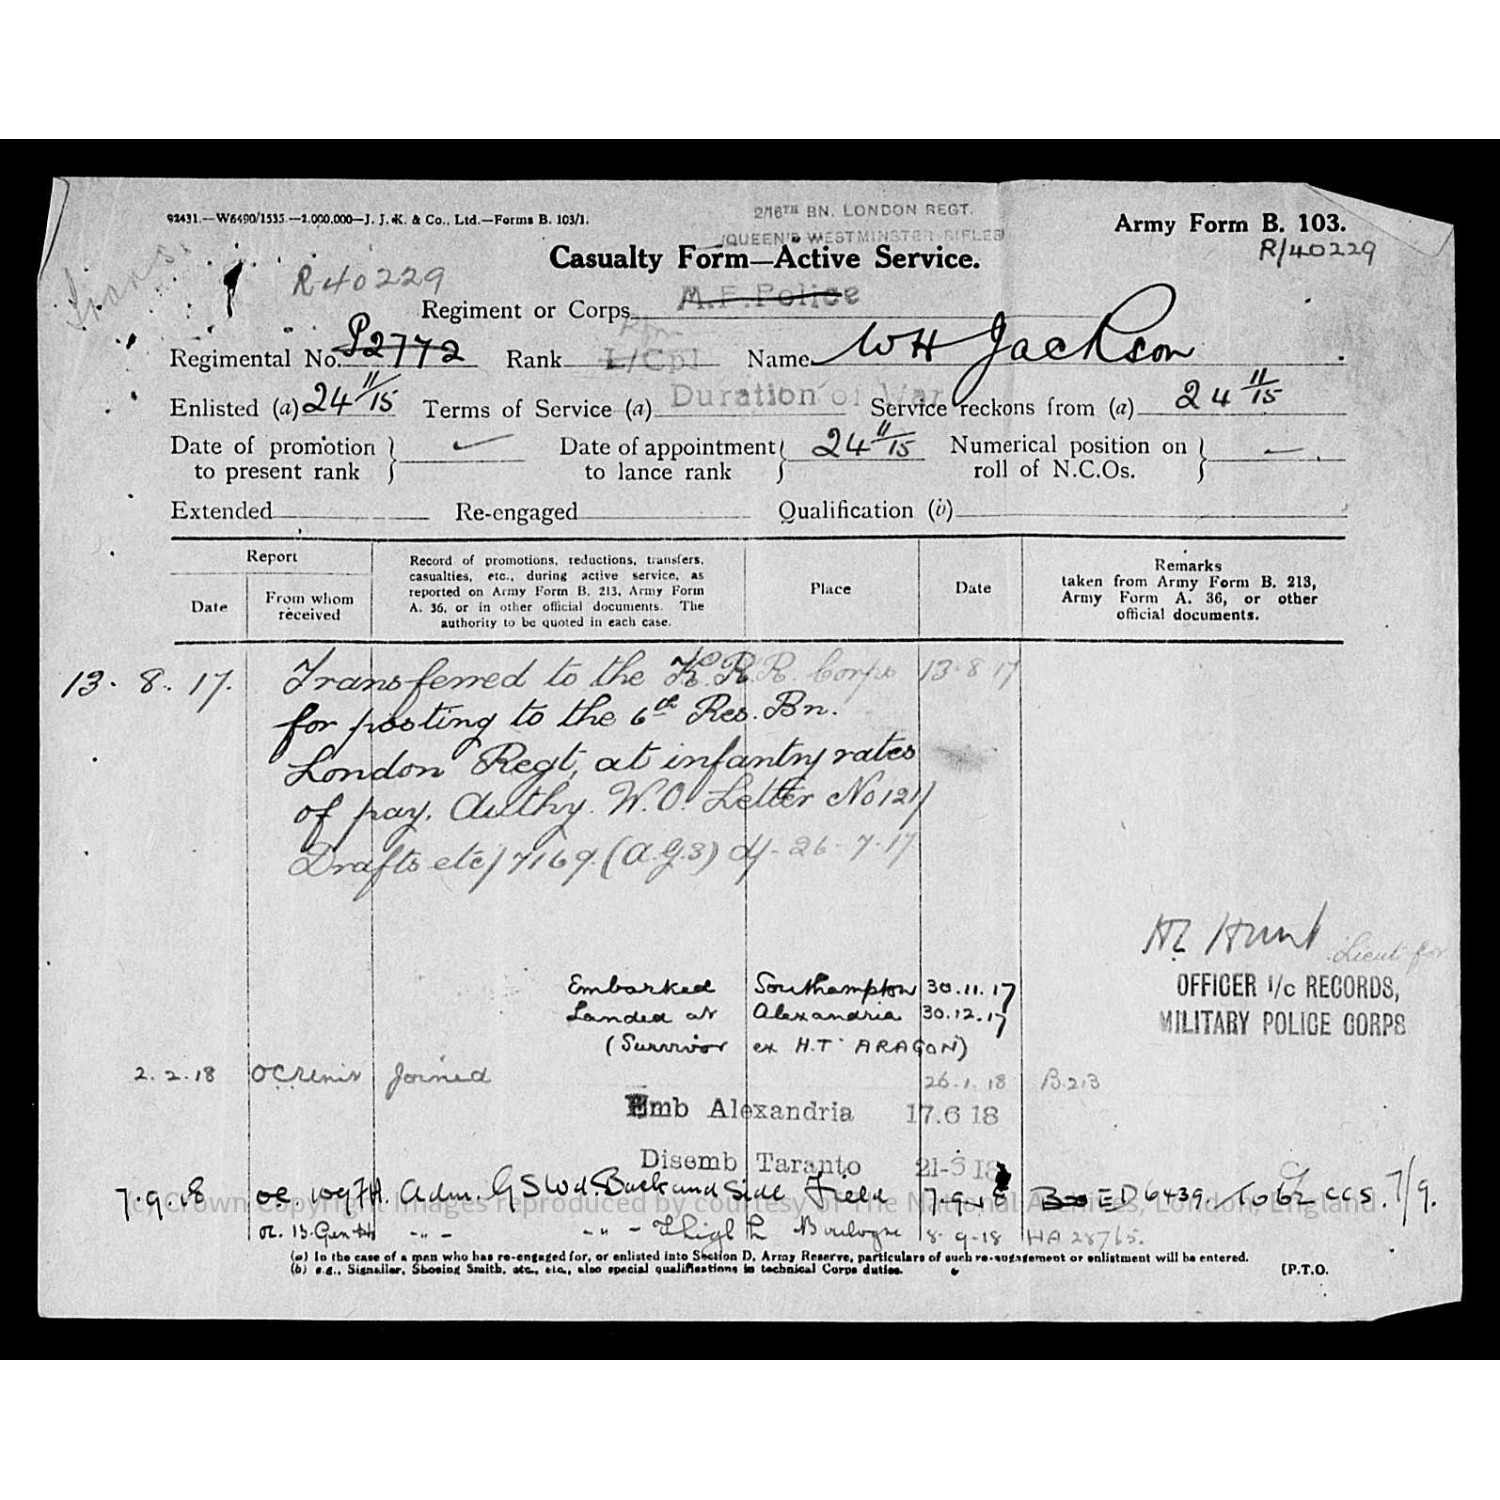 92431.—W6490/1535.—1,000,000—J. J. K. & Co., Ltd.—Forms B. 103/1.
2/16TH BN. LONDON REGT.
(QUEEN'S WESTMINSTER RIFLES)
Army Form B. 103.
R/40229
Casualty Form—Active Service.
R-40229
Regiment or Corps M.F. Police
Rfn
Regimental No. P2772 Rank L/Cpl Name WH Jackson
Enlisted (a) 24/11/15 Terms of Service (a) Duration of War Service reckons from (a) 24 11/15
Date of promotion to present rank Date of appointment to lance rank 24 11/15 Numerical position on roll of N.C.Os. —
Extended Re-engaged Qualification (b)
Report
Date
From whom received
Record of promotions, reductions, transfers, casualties, etc., during active service, as reported on Army Form B. 213, Army Form A. 36, or in other official documents. The authority to be quoted in each case.
Place
Date
Remarks
taken from Army Form B. 213, Army Form A. 36, or other official documents.
13. 8. 17. Transferred to the K.R.R. Corps 13-8-17
for posting to the 6th Res. Bn.
London Regt, at infantry rates
of pay. Authy. W.O. Letter No 121/
Drafts etc/7169. (A.G.3) d/- 26-7-17
H Hunt Lieut for
OFFICER I/C RECORDS,
MILITARY POLICE CORPS
Embarked Southampton 30.11.17
Landed at Alexandria 30.12.17
(Survivor ex H.T ARAGON)
2.2.18 OC Unit Joined 26.1.18 B.213
Emb Alexandria 17.6 18
Disemb Taranto 21-6 18
7.9.18 oc. Adm. GSWd. Back and Side Field 7-9-18 ED6439. To 62 CCS. 7/9.
oc. 13. Gen H " " - " " - Thigh L Boulogne 8-9-18 HA 28765.
(c) Crown Copyright Images reproduced by courtesy of The National Archives, London, England.
(a) In the case of a man who has re-engaged for, or enlisted into Section D, Army Reserve, particulars of such re-engagement or enlistment will be entered.
(b) e.g., Signaller, Shoeing Smith, etc., etc., also special qualifications in technical Corps duties.
[P.T.O.